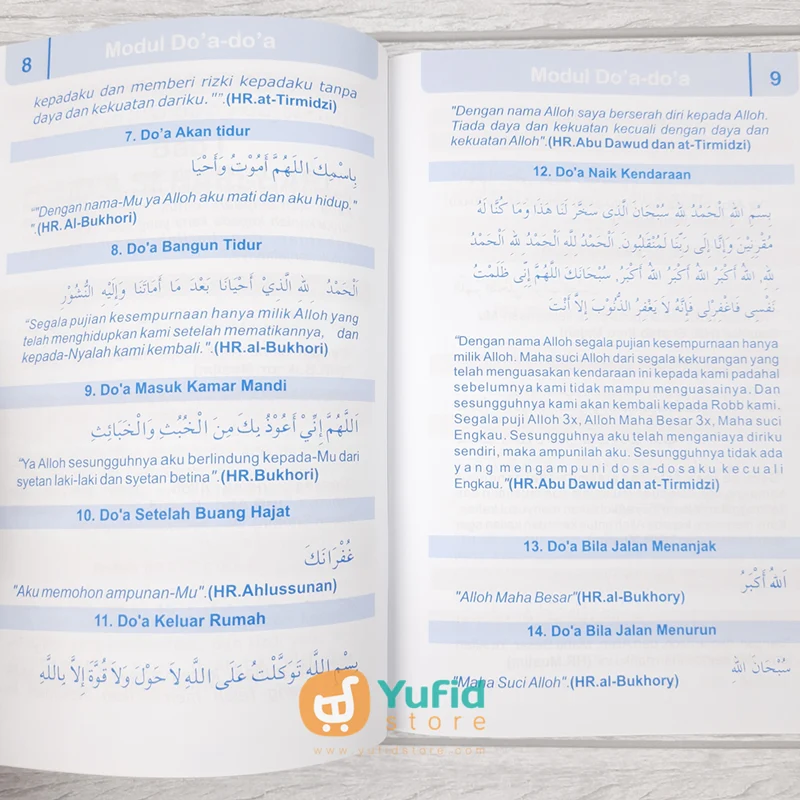 8
Modul Do'a-do'a
kepadaku dan memberi rizki kepadaku tanpa
daya dan kekuatan dariku."".(HR.at-Tirmidzi)
7. Do'a Akan tidur
بِاسْمِكَ اللَّهُمَّ أَمُوْتُ وَأَحْيَا
""Dengan nama-Mu ya Alloh aku mati dan aku hidup."
".(HR. Al-Bukhori)
8. Do'a Bangun Tidur
اَلْحَمْدُ لِلهِ الَّذِيْ أَحْيَانَا بَعْدَ مَا أَمَاتَنَا وَإِلَيْهِ النُّشُوْرُ
"Segala pujian kesempurnaan hanya milik Alloh yang
telah menghidupkan kami setelah mematikannya, dan
kepada-Nyalah kami kembali.".(HR.al-Bukhori)
9. Do'a Masuk Kamar Mandi
اَللَّهُمَّ إِنِّيْ أَعُوْذُ بِكَ مِنَ الْخُبُثِ وَالْخَبَائِثِ
"Ya Alloh sesungguhnya aku berlindung kepada-Mu dari
syetan laki-laki dan syetan betina".(HR.Bukhori)
10. Do'a Setelah Buang Hajat
غُفْرَانَكَ
"Aku memohon ampunan-Mu".(HR.Ahlussunan)
11. Do'a Keluar Rumah
بِسْمِ اللَّهِ تَوَكَّلْتُ عَلَى اللَّهِ لاَ حَوْلَ وَلاَ قُوَّةَ إِلاَّ بِاللَّهِ
Modul Do'a-do'a
9
"Dengan nama Alloh saya berserah diri kepada Alloh.
Tiada daya dan kekuatan kecuali dengan daya dan
kekuatan Alloh".(HR.Abu Dawud dan at-Tirmidzi)
12. Do'a Naik Kendaraan
بِسْمِ اللهِ الْحَمْدُ لِلهِ سُبْحَانَ الَّذِى سَخَّرَ لَنَا هَذَا وَمَا كُنَّا لَهُ
مُقْرِنِيْنَ وَإِنَّا إِلَى رَبِّنَا لَمُنْقَلِبُوْنَ. الْحَمْدُ لِلَّهِ الْحَمْدُ لِلهِ الْحَمْدُ
لِلهِ، اللهُ أَكْبَرُ اللهُ أَكْبَرُ اللهُ أَكْبَرُ، سُبْحَانَكَ اللَّهُمَّ إِنِّى ظَلَمْتُ
نَفْسِى فَاغْفِرْلِى فَإِنَّهُ لاَ يَغْفِرُ الذُّنُوْبَ إِلاَّ أَنْتَ
"Dengan nama Alloh segala pujian kesempurnaan hanya
milik Alloh. Maha suci Alloh dari segala kekurangan yang
telah menguasakan kendaraan ini kepada kami padahal
sebelumnya kami tidak mampu menguasainya. Dan
sesungguhnya kami akan kembali kepada Robb kami.
Segala puji Alloh 3x, Alloh Maha Besar 3x, Maha suci
Engkau. Sesungguhnya aku telah menganiaya diriku
sendiri, maka ampunilah aku. Sesungguhnya tidak ada
yang mengampuni dosa-dosaku kecuali
Engkau."(HR.Abu Dawud dan at-Tirmidzi)
13. Do'a Bila Jalan Menanjak
اَللهُ أَكْبَرُ
"Alloh Maha Besar"(HR.al-Bukhory)
14. Do'a Bila Jalan Menurun
سُبْحَانَ اللهِ
"Maha Suci Alloh".(HR.al-Bukhory)
Yufid
store
www.yufidstore.com